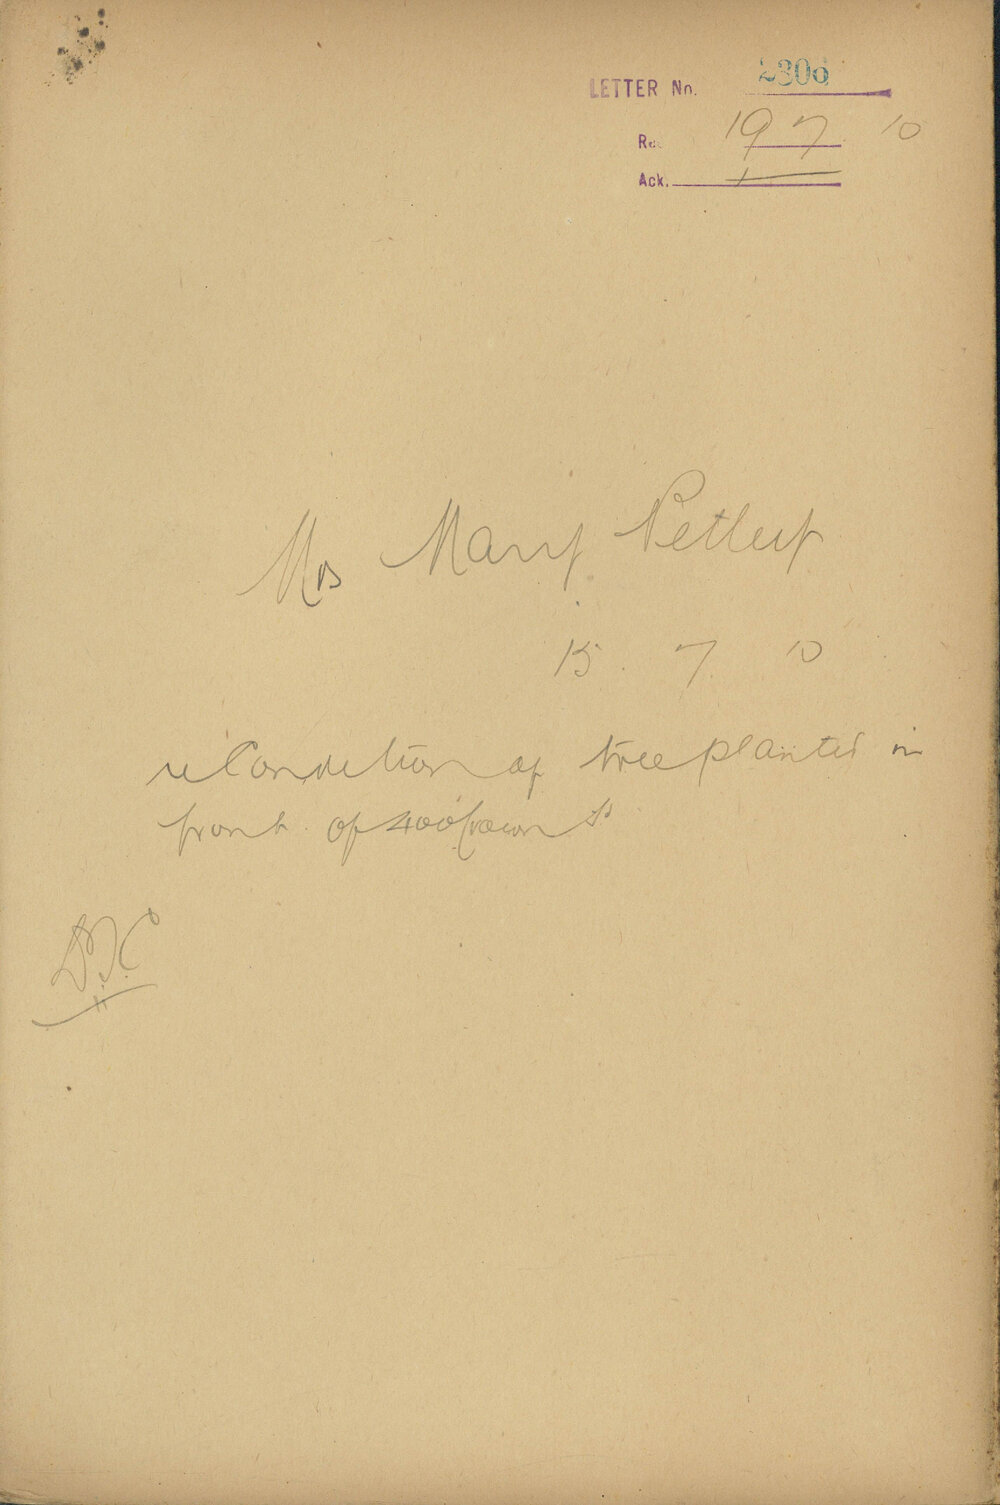 LETTER No. 2306
Re. 19 7 10
Ack.
Mrs Mary
15 . 7 . 10
re Condition of tree planted in
front of 400 Crown St